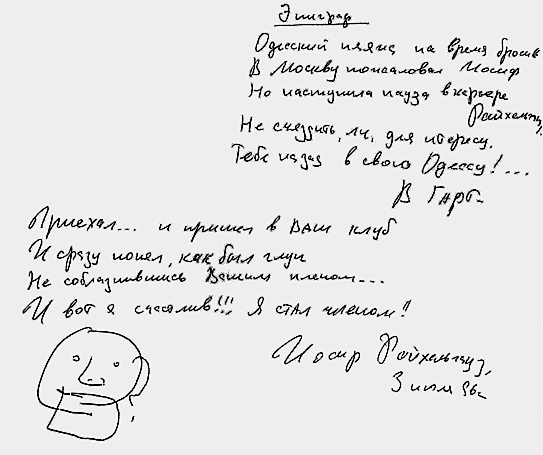 Эпиграф
Одесский пляж на время бросив
В Москву пожаловал Иосиф
Но наступила пауза в карьере
Райхельгауз,
Не съездить, ли, для интересу,
Тебе назад в свою Одессу!...
В Гафт.
Приехал... и пришел в Ваш клуб
И сразу понял, как был глуп
Не соблазнившись Вашим пленом...
И вот я счастлив!!! Я стал членом!
Иосиф Райхельгауз,
3 96г